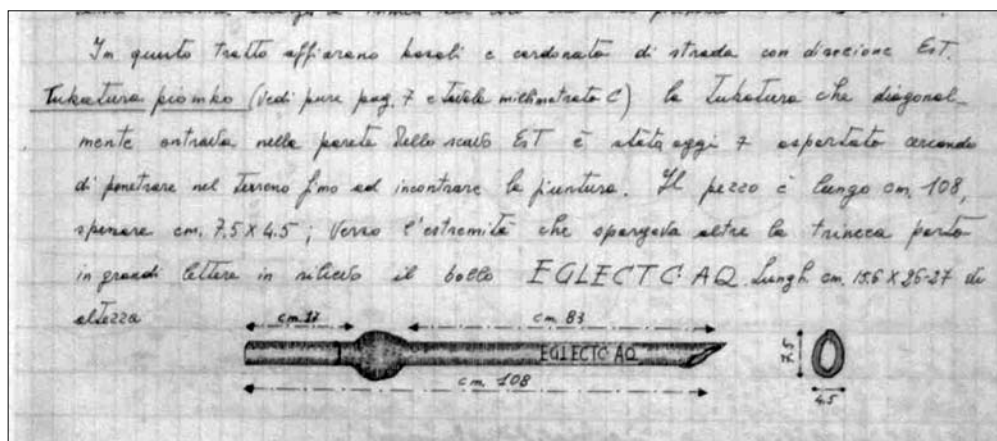 In questo tratto affiorano basoli e cordonata di strada con direzione EsT.
Tubatura piombo (Vedi pure pag. 7 e tavola millimetrata C) la Tubatura che diagonal-
mente entrava nella parete dello scavo EsT è stata oggi 7 asportata cercando
di penetrare nel Terreno fino ad incontrare la giuntura. Il pezzo è lungo cm. 108,
spessore cm. 7.5 x 4.5 ; Verso l'estremità che sporgeva oltre la trincea porta
in grandi lettere in rilievo il bollo EGLECTC AQ Lungh. cm. 15.6 x 26-27 di
altezza
cm. 17
cm. 83
EGLECTC AQ
7.5
cm. 108
4.5